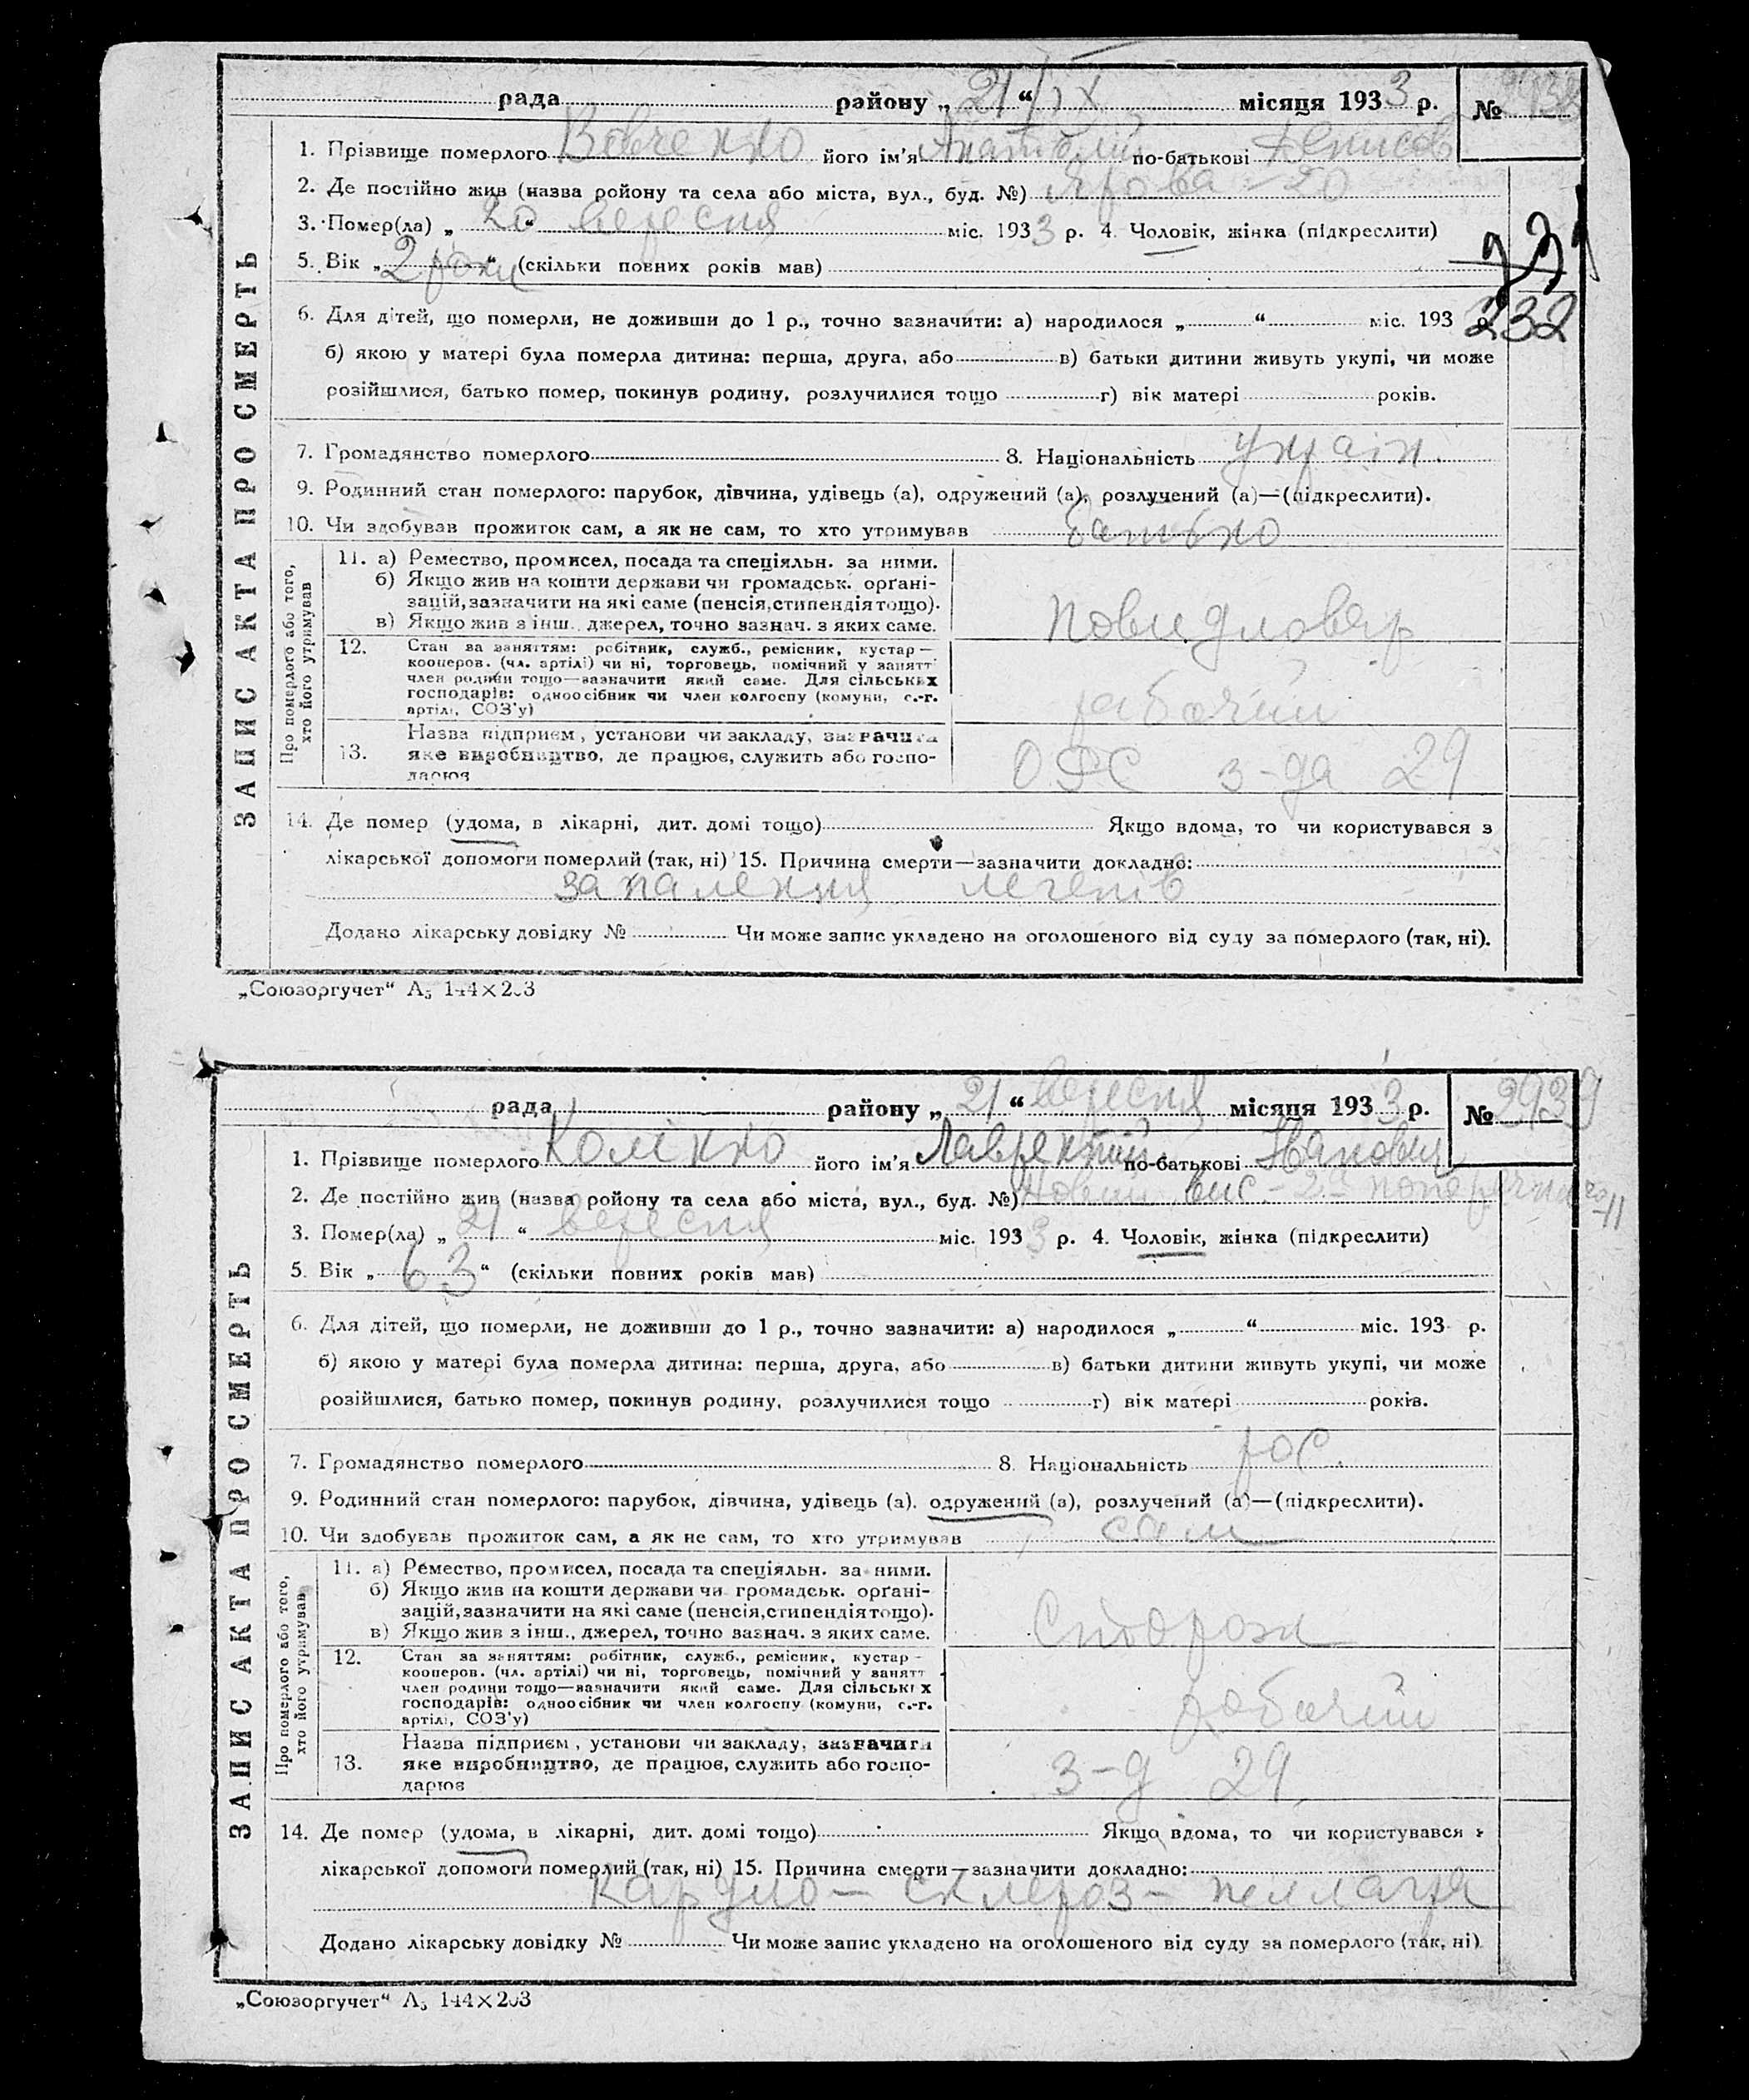 рада району „ 21 “ IX місяця 1933 р. № 2938
1. Прізвище померлого Вовченко його ім’я Анатолий по-батькові Денисов
2. Де постійно жив (назва ройону та села або міста, вул., буд. №) Ярова - 20
3. Помер(ла) „ 20 “ вересня міс. 1933 р. 4. Чоловік, жінка (підкреслити)
5. Вік „ 2 роки “ (скільки повних років мав)
6. Для дітей, що померли, не доживши до 1 р., точно зазначити: а) народилося „ “ міс. 193 р.
232
б) якою у матері була померла дитина: перша, друга, або в) батьки дитини живуть укупі, чи може
розійшлися, батько помер, покинув родину, розлучилися тощо г) вік матері років.
7. Громадянство померлого 8. Національність україн.
9. Родинний стан померлого: парубок, дівчина, удівець (а), одружений (а), розлучений (а)—(підкреслити).
10. Чи здобував прожиток сам, а як не сам, то хто утримував батько
ЗАПИС АКТА ПРО СМЕРТЬ
Про померлого або того, хто його утримував
11. а) Ремество, промисел, посада та спеціяльн. за ними.
б) Якщо жив на кошти держави чи громадськ. орґані-
зацій, зазначити на які саме (пенсія, стипендія тощо).
в) Якщо жив з інш. джерел, точно зазнач. з яких саме.
12. Стан за заняттям: робітник, служб., ремісник, кустар—
кооперов. (чл. артілі) чи ні, торговець, помічний у занятт
член родини тощо—зазначити який саме. Для сільських
господарів: одноосібник чи член колгоспу (комуни, с.-г.
артілі, СОЗ'у)
рабочий
13. Назва підприєм, установи чи закладу, зазначити
яке виробництво, де працює, служить або госпо-
дарює
з-да 29
14. Де помер (удома, в лікарні, дит. домі тощо) Якщо вдома, то чи користувався з
лікарської допомоги померлий (так, ні) 15. Причина смерти—зазначити докладно:
запалення легенів
Додано лікарську довідку № Чи може запис укладено на оголошеного від суду за померлого (так, ні).
„Союзоргучет“ А₅ 144×203
рада району „ 21 “ вересня місяця 1933 р. № 2939
1. Прізвище померлого Колінко його ім’я Лаврентий по-батькові Иванович
2. Де постійно жив (назва ройону та села або міста, вул., буд. №) Новий вис - 2а поперечна
3. Помер(ла) „ 21 “ вересня міс. 1933 р. 4. Чоловік, жінка (підкреслити)
5. Вік „ 63 “ (скільки повних років мав)
6. Для дітей, що померли, не доживши до 1 р., точно зазначити: а) народилося „ “ міс. 193 р.
б) якою у матері була померла дитина: перша, друга, або в) батьки дитини живуть укупі, чи може
розійшлися, батько помер, покинув родину, розлучилися тощо г) вік матері років.
7. Громадянство померлого 8. Національність рос.
9. Родинний стан померлого: парубок, дівчина, удівець (а), одружений (а), розлучений (а)—(підкреслити).
10. Чи здобував прожиток сам, а як не сам, то хто утримував сам
ЗАПИС АКТА ПРО СМЕРТЬ
Про померлого або того, хто його утримував
11. а) Ремество, промисел, посада та спеціяльн. за ними.
б) Якщо жив на кошти держави чи громадськ. орґані-
зацій, зазначити на які саме (пенсія, стипендія тощо).
в) Якщо жив з інш., джерел, точно зазнач. з яких саме.
Сторож
12. Стан за заняттям: робітник, служб., ремісник, кустар—
кооперов. (чл. артілі) чи ні, торговець, помічний у занятт
член родини тощо—зазначити який саме. Для сільських
господарів: одноосібник чи член колгоспу (комуни, с.-г.
артілі, СОЗ'у)
рабочий
13. Назва підприєм, установи чи закладу, зазначити
яке виробництво, де працює, служить або госпо-
дарює
з-д 29
14. Де помер (удома, в лікарні, дит. домі тощо) Якщо вдома, то чи користувався з
лікарської допомоги померлий (так, ні) 15. Причина смерти—зазначити докладно:
кардио - склероз - пеллагра
Додано лікарську довідку № Чи може запис укладено на оголошеного від суду за померлого (так, ні)
„Союзоргучет“ А₅ 144×203